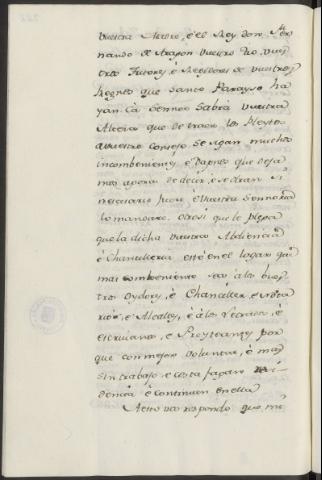 vuestra Madre, è el Rey don Fer
nando de Aragon vuestro tio, vues
tros Tutores, è Regidores de vuestros
Regnos que Sancto Parayso ha
yan. Cà Sennor Sabrà vuestra
Alteza que de traer los Pleytos
à vuestro Consejo se sigan muchos
incombenientes, è dapnos que deja
mos agora de decir, è se diràn si
necesario fuere è vuestra Sennoria
lo mandare. Otrosi que le plega
que la dicha vuestra Abdiencia
è Chancilleria estè en el logar que
mas combeniente sea à los vues
tros Oydores, è Chanciller, è Nota
rios, è Alcalles, è à los Letrados, è
Escrivanos, è Pleyteantes por
que con mejor voluntad, è mas
sin trabajo, è costa fagan
dencia è continuen en ella
A esto vos respondo que mi